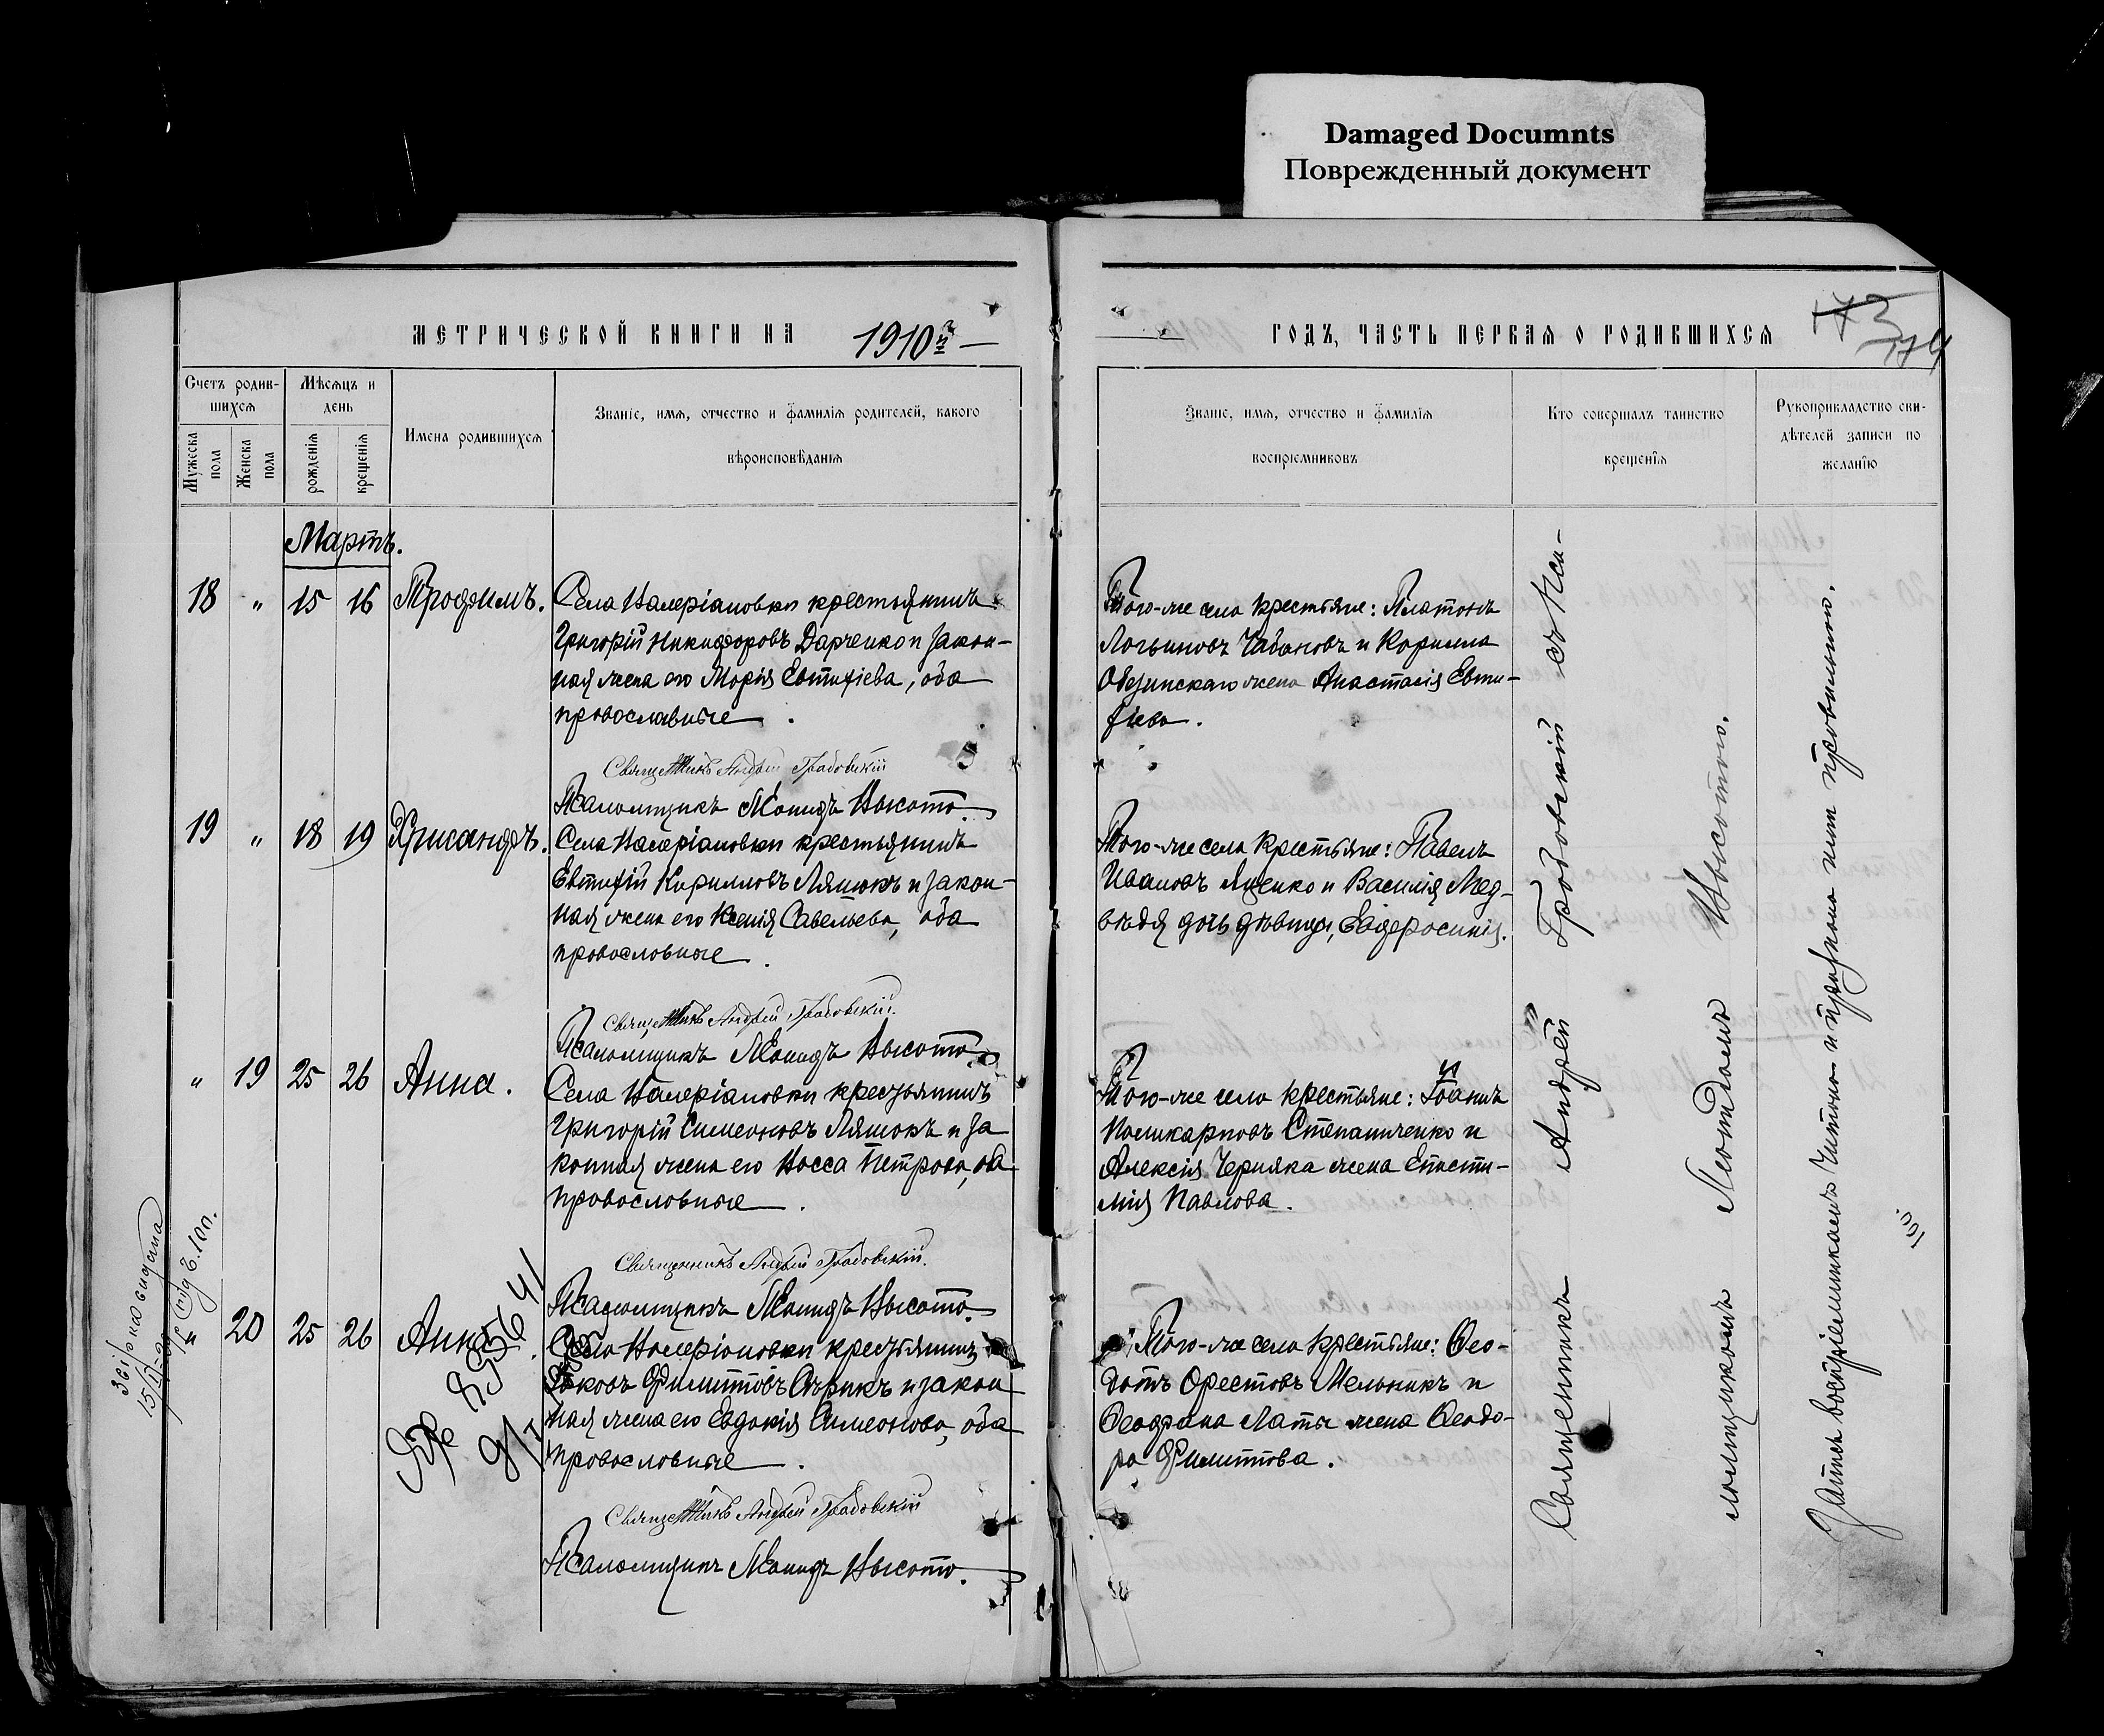 Damaged Documnts
Поврежденный документ
МЕТРИЧЕСКОЙ КНИГИ НА 1910й
ГОДЪ, ЧАСТЬ ПЕРВАЯ О РОДИВШИХСЯ
173
174
Счетъ родив-
шихся
Мужеска пола
Женска пола
Мѣсяцъ и
день
рожденія
крещенія
Имена родившихся
Званіе, имя, отчество и фамилія родителей, какого
вѣроисповѣданія
Званіе, имя, отчество и фамилія
воспріемниковъ
Кто совершалъ таинство
крещенія
Рукоприкладство сви-
дѣтелей записи по
желанію
Мартъ.
18 " 15 16 Трофимъ.
Села Валеріановки крестьянинъ
Григорій Никифоровъ Дарченко и закон-
ная жена его Марія Евтихіева, оба
православные.
Священникъ Андрей Грабовскій
Псаломщикъ Леонидъ Высота.
Того-же села крестьяне: Платонъ
Логвиновъ Чабановъ и Корнила
Обезинскаго жена Анастасія Евти-
хіева.
19 " 18 19 Хрисанфъ.
Села Валеріановки крестьянинъ
Евтихій Кирилловъ Ляшокъ и закон-
ная жена его Ксенія Савельева, оба
православные.
Священникъ Андрей Грабовскій.
Псаломщикъ Леонидъ Высота.
Того-же села крестьяне: Павелъ
Ивановъ Яценко и Василія Мед-
вѣдя дочь дѣвица, Евфросинія.
" 19 25 26 Анна.
Села Валеріановки крестьянинъ
Григорій Симеоновъ Ляшокъ и за
конная жена его Васса Петрова, оба
православные.
Священникъ Андрей Грабовскій.
Псаломщикъ Леонидъ Высота.
Того-же села крестьяне: Іоаннъ
Поликарповъ Степаниченко и
Алексія Черняка жена Еписти-
мія Павлова.
20 25 26 Анна.
Села Валеріановки крестьянинъ
Яковъ Филипповъ Сѣрикъ и закон
ная жена его Евдокія Симеонова, оба
православные.
Священникъ Андрей Грабовскій
Псаломщикъ Леонидъ Высота.
Того-же села крестьяне: Ѳео-
дотъ Орестовъ Мельникъ и
жена Ѳеодо-
ра Филиппова.
Священникъ Андрей Грабовскій съ Пса-
ломщикомъ Леонидомъ Высотою.
Запись воспріемникамъ читана и признана ими правильною.